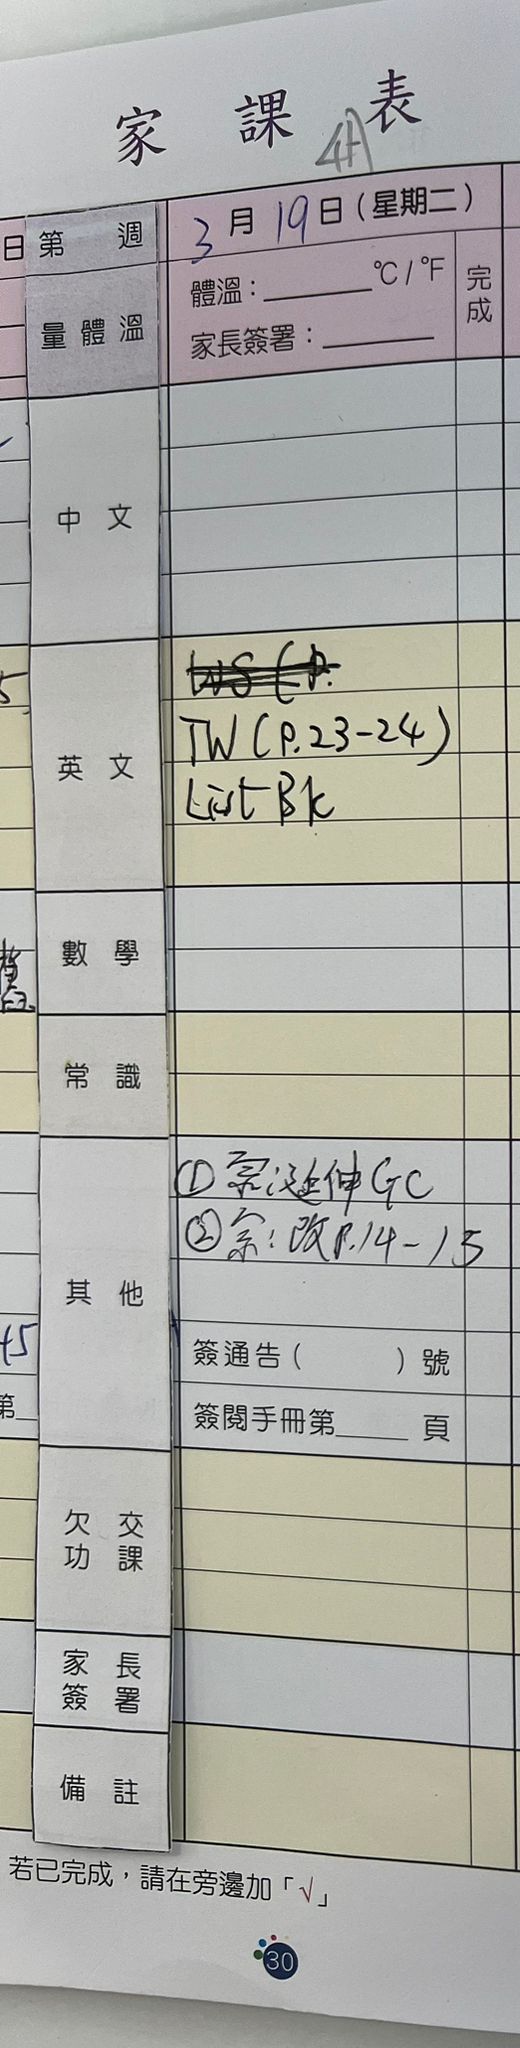 家課表
4H
日
第 週
3月19日(星期二)
量體溫
體溫：______°C/°F
家長簽署：______
完成
中文
英文
TW (P.23-24)
List BK
5
數學
常識
其他
① 宗:延伸GC
② 宗:改P.14-15
簽通告( )號
簽閱手冊第____頁
45
第
欠交功課
家長簽署
備註
若已完成，請在旁邊加「√」
30